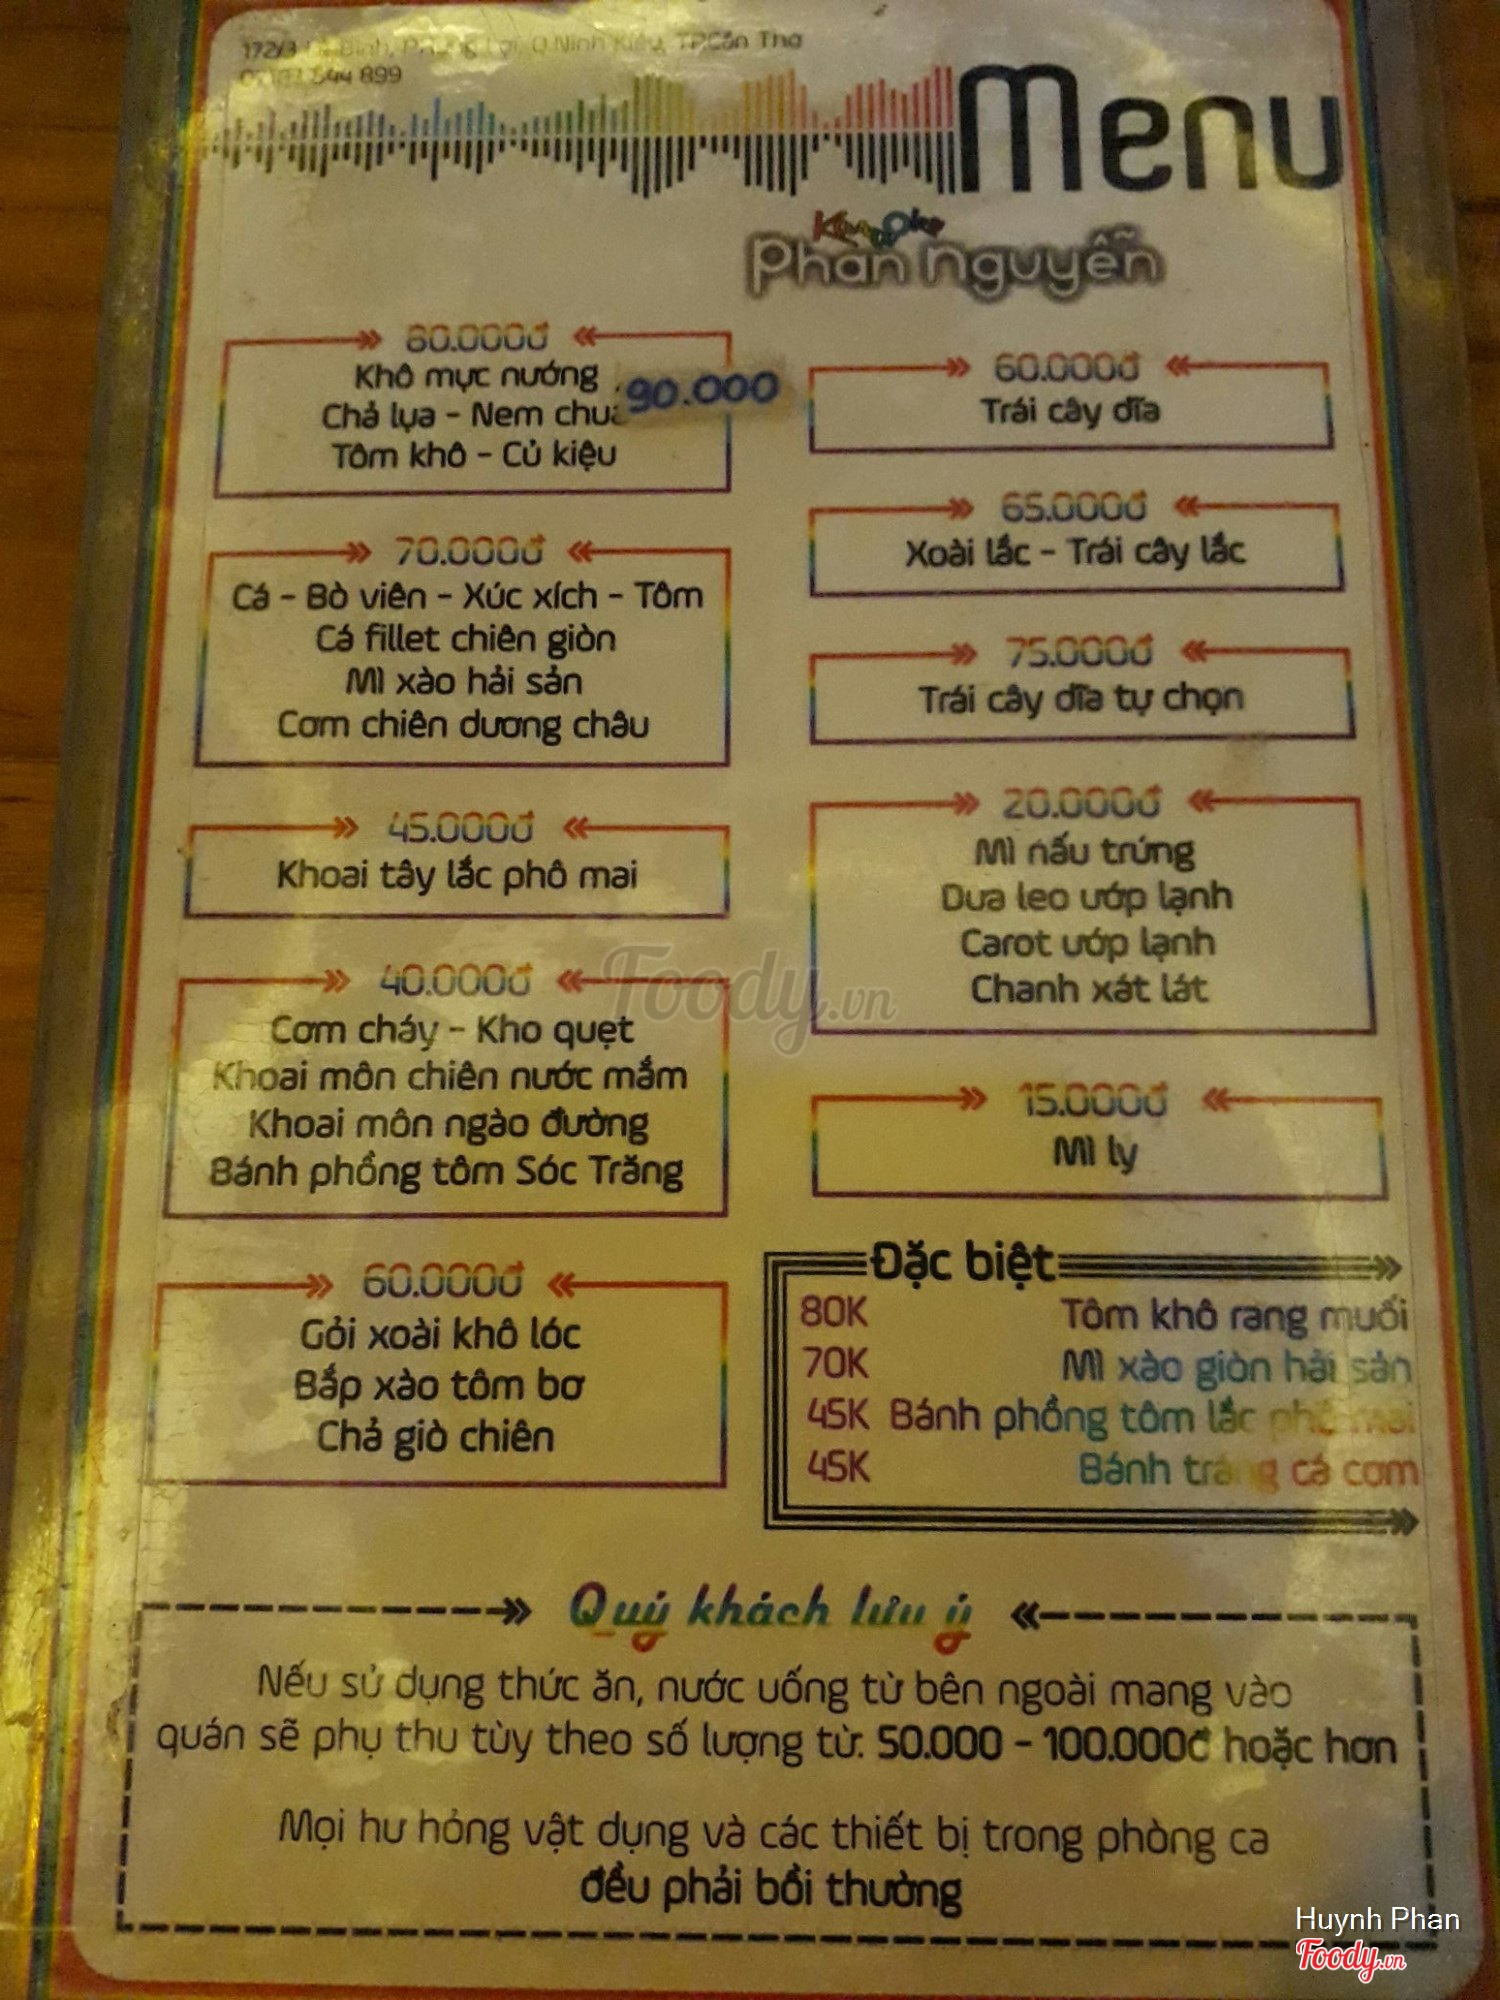 172/3 Bình, Lợi, Q.Ninh Kiều, TP.Cần Thơ
544 899
Menu
Karaoke
Phan Nguyễn
80.000đ
Khô mực nướng 90.000
Chả lụa - Nem chua
Tôm khô - Củ kiệu
70.000đ
Cá - Bò viên - Xúc xích - Tôm
Cá fillet chiên giòn
Mì xào hải sản
Cơm chiên dương châu
45.000đ
Khoai tây lắc phô mai
40.000đ
Cơm cháy - Kho quẹt
Khoai môn chiên nước mắm
Khoai môn ngào đường
Bánh phồng tôm Sóc Trăng
60.000đ
Gỏi xoài khô lóc
Bắp xào tôm bơ
Chả giò chiên
60.000đ
Trái cây dĩa
65.000đ
Xoài lắc - Trái cây lắc
75.000đ
Trái cây dĩa tự chọn
20.000đ
Mì nấu trứng
Dưa leo ướp lạnh
Carot ướp lạnh
Chanh xát lát
15.000đ
Mì ly
Đặc biệt
80K Tôm khô rang muối
70K Mì xào giòn hải sản
45K Bánh phồng tôm lắc phô mai
45K Bánh tráng cá cơm
Quý khách lưu ý
Nếu sử dụng thức ăn, nước uống từ bên ngoài mang vào
quán sẽ phụ thu tùy theo số lượng từ: 50.000 - 100.000đ hoặc hơn
Mọi hư hỏng vật dụng và các thiết bị trong phòng ca
đều phải bồi thường
Foody.vn
Huynh Phan
Foody.vn